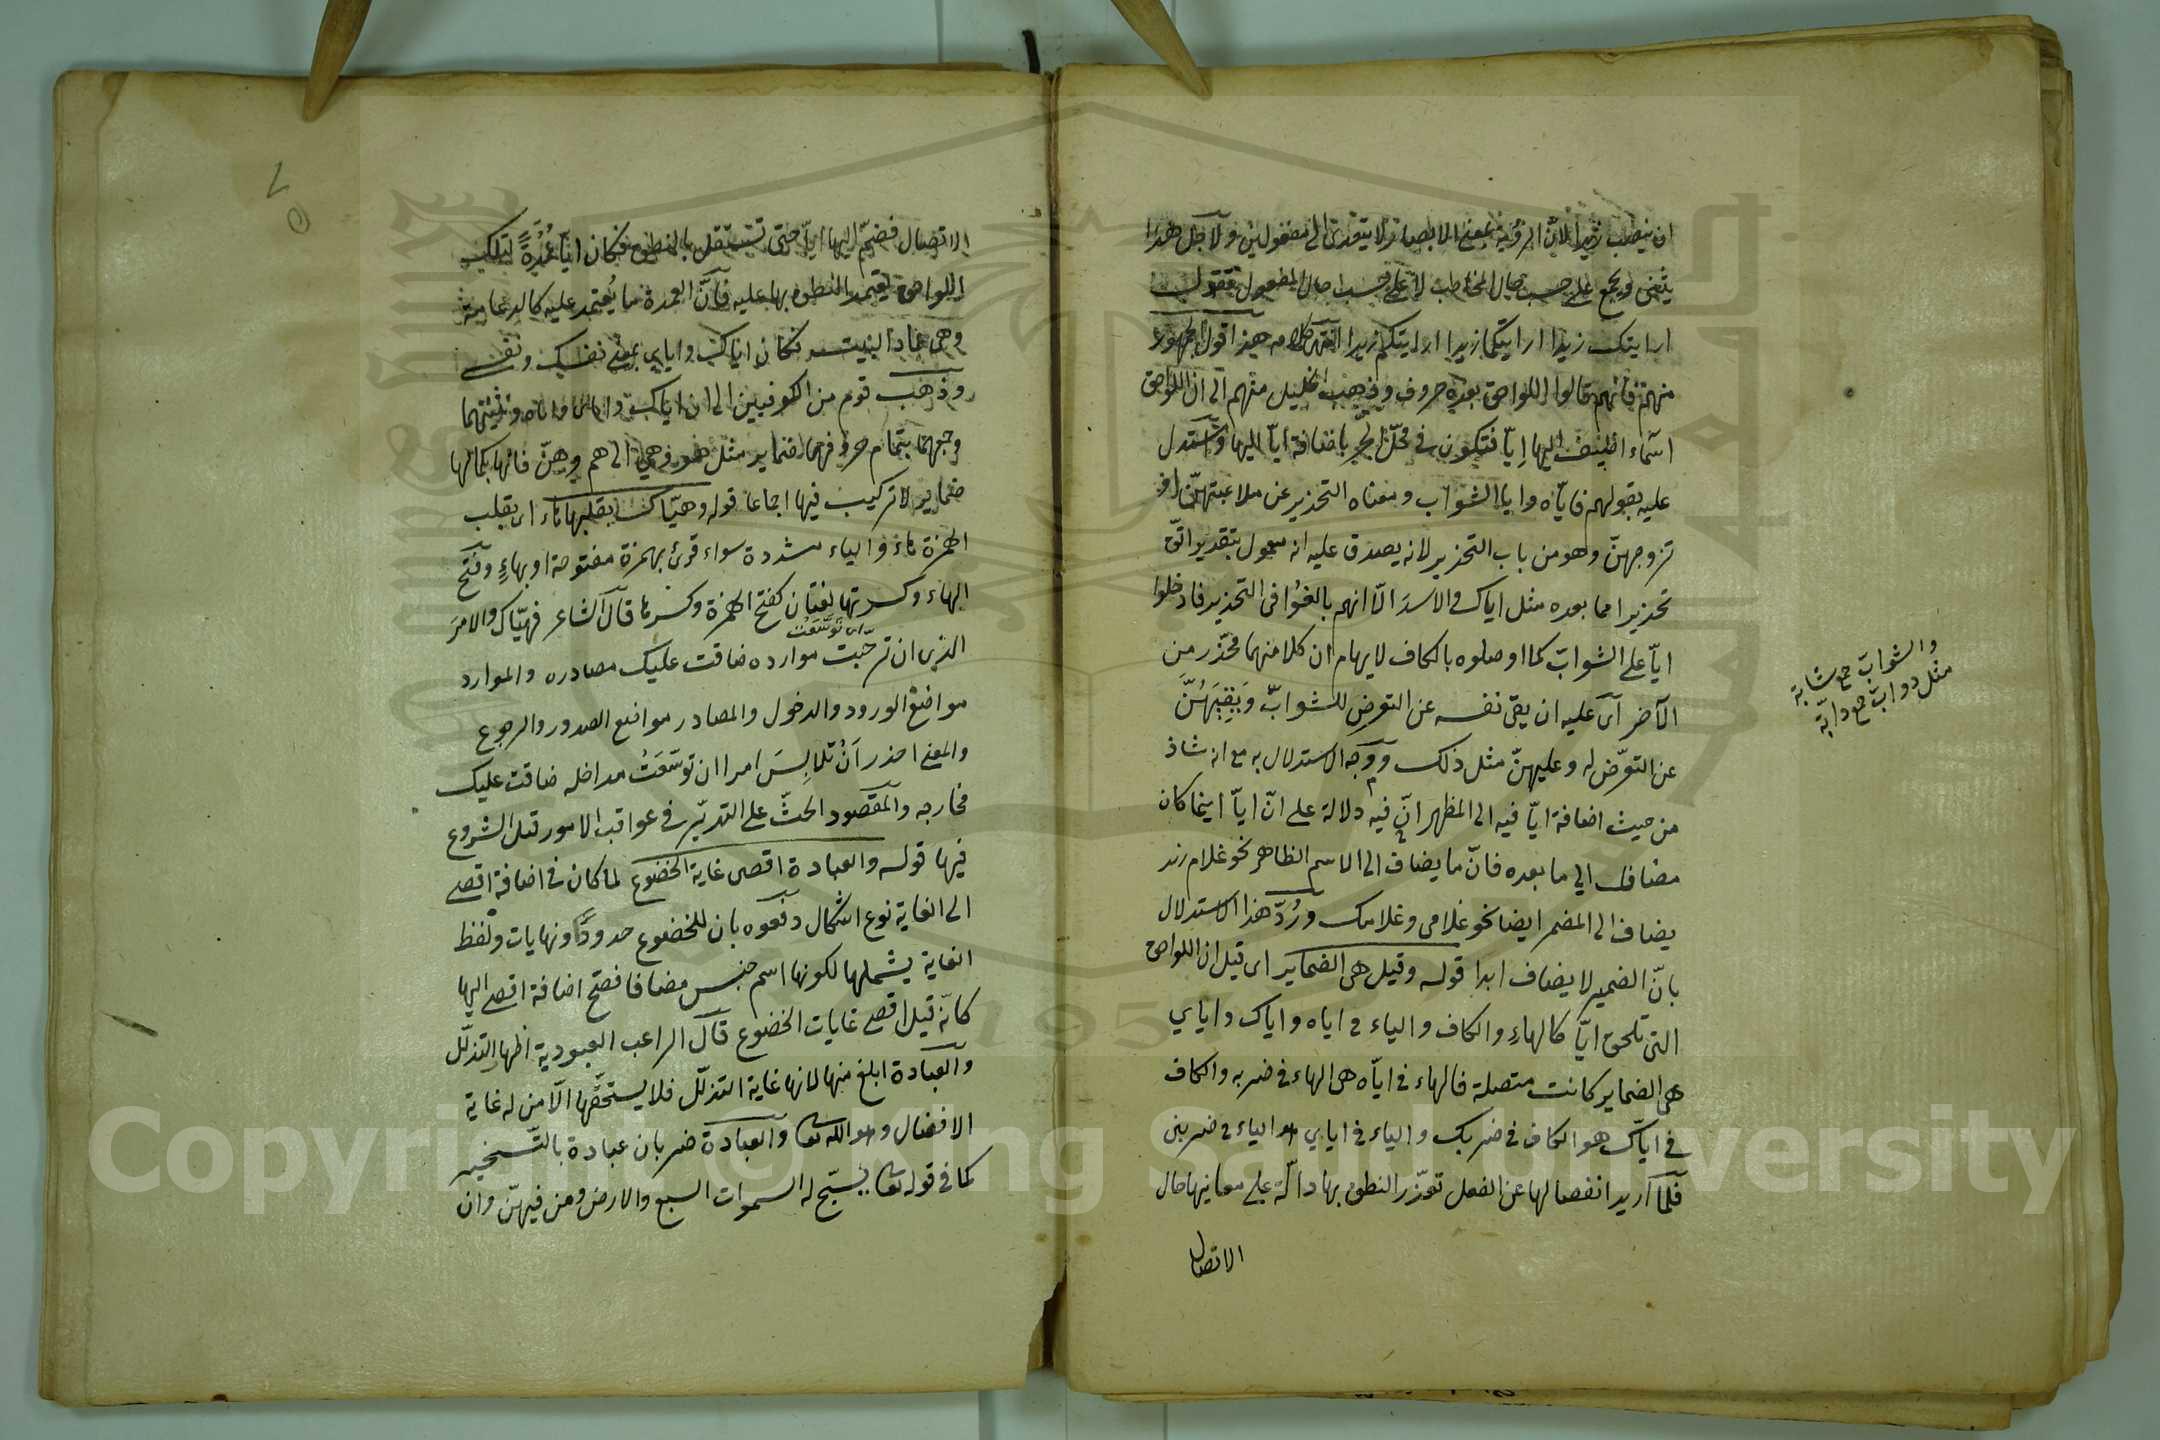 ان ينصب زيدا لان الرؤية بمعنى الابصار لا يتعدى الى مفعولين ولاجل هذا
يثنى ويجمع على حسب حال المخاطب لا على حسب حال المفعول تقول
ارايتك زيدا ارايتكما زيدا ارايتكم زيدا انتهى كلامه هذا قول الجمهور
منهم فانهم قالوا اللواحق بعده حروف وذهب الخليل منهم الى ان اللواحق
اسماء اضيف اليها إيّا فتكون في محل الجر باضافة ايّا اليها واستدل
عليه بقولهم فاياه وايا الشواب ومعناه التحذير عن ملاعبتهنّ او
تزوجهنّ وهو من باب التحذير لانه يصدق عليه انه معمول بتقدير اتق
تحذيرا مما بعده مثل اياك والاسدَ الّا انهم بالغوُا في التحذير فادخلوا
ايّا على الشوابّ كما اوصلوه بالكاف لايهام ان كلا منهما محذّر من
الآخر اى عليه ان يقي نفسه عن التعرض للشوابّ وَيَقِيَهُنَّ
عن التعرّض له وعليهنّ مثل ذلك ووجه الاستدلال به مع انه شاذ
من حيث اضافة ايّا فيه الى المظهر انّ فيه دلالة على انّ ايّا اينما كان
مضاف الى ما بعده فانّ ما يضاف الى الاسم الظاهر نحو غلام زيد
يضاف الى المضمر ايضا نحو غلامى وغلامك ورُدّ هذا الاستدلال
بانّ الضمير لا يضاف ابدا قوله وقيل هى الضماير اى قيل ان اللواحق
التى تلحق ايّا كالهاءِ والكاف والياء فى اياه واياك واياي
هى الضماير كانت متصلة فالهاء فى ايّاه هى الهاء فى ضربه والكاف
فى ايّاك هو الكاف فى ضربك والياء فى اياي هو الياء فى ضربنى
فلمّا اريد انفصالها عن الفعل تعذّر النطق بها دالّة على معانيها حال
الاتصال
والشوابّ جمع شابّة
مثل دوابّ جمع دابّة
الاتصال فضمّ اليها ايّا حتى تستقل بالنطق فكان ايّا عُمْدَةً لتلك
اللواحق يعتمد النطق بها عليه فانّ العمدة ما يُعتمد عليه كالدعامة
وهى عماد البيت فكان اياك واياي بمعنى نفسك ونفسى
وذهب قوم من الكوفيين الى ان اياك واياى واياه وتثنيتهما
وجمعهما بتمام حروفهما ضماير مثل هو وهي الى هم وهنّ فانها بكمالها
ضماير لا تركيب فيها اجماعا قوله وهيّاك بقلبها هاء اى بقلب
الهمزة هاءً والياء مشددة سواء قرئ بهمزة مفتوحة او بهاءٍ وفتح
الهاء وكسرتها لغتان كفتح الهمزة وكسرها قال الشاعر فهيّاك والامرَ
اى توسّعَتْ
الذى ان ترحّبت موارده ضاقت عليك مصادره والموارد
مواضع الورود والدخول والمصادر مواضع الصدور والرجوع
والمعنى احذر اَنْ تُلابِسَ امرا ان توسّعَتْ مداخله ضاقت عليك
مخارجه والمقصود الحثّ على التدبّر فى عواقب الامور قبل الشروع
فيها قوله والعبادة اقصى غاية الخضوع لما كان فى اضافة اقصى
الى الغاية نوع اشكال دفعوه بان للخضوع حدودًا ونهايات ولفظ
الغاية يشملها لكونها اسم جنس مضافا فصح اضافة اقصى اليها
كانّه قيل اقصى غايات الخضوع قال الراغب العبودية اظهار التذلّل
والعبادة ابلغ منها لانها غاية التذلّل فلا يستحقّها الّا من له غاية
الافضال وهو الله تعالى والعبادة ضربان عبادة بالتسخير
كما فى قوله تعالى يسبّح له السموات السبع والارض ومن فيهنّ وان
Copyright © King Saud University
1957